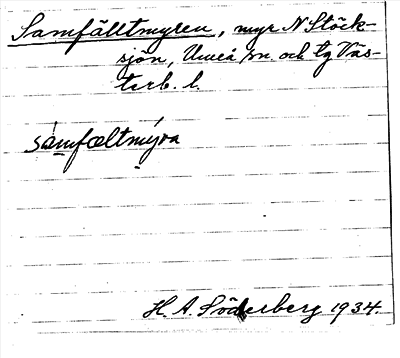 Samfälltmyren, myr N Stöck-
sjön, Umeå sn. och tg Väs-
terb. l.
samfæltmyra
H. A. Söderberg 1934.